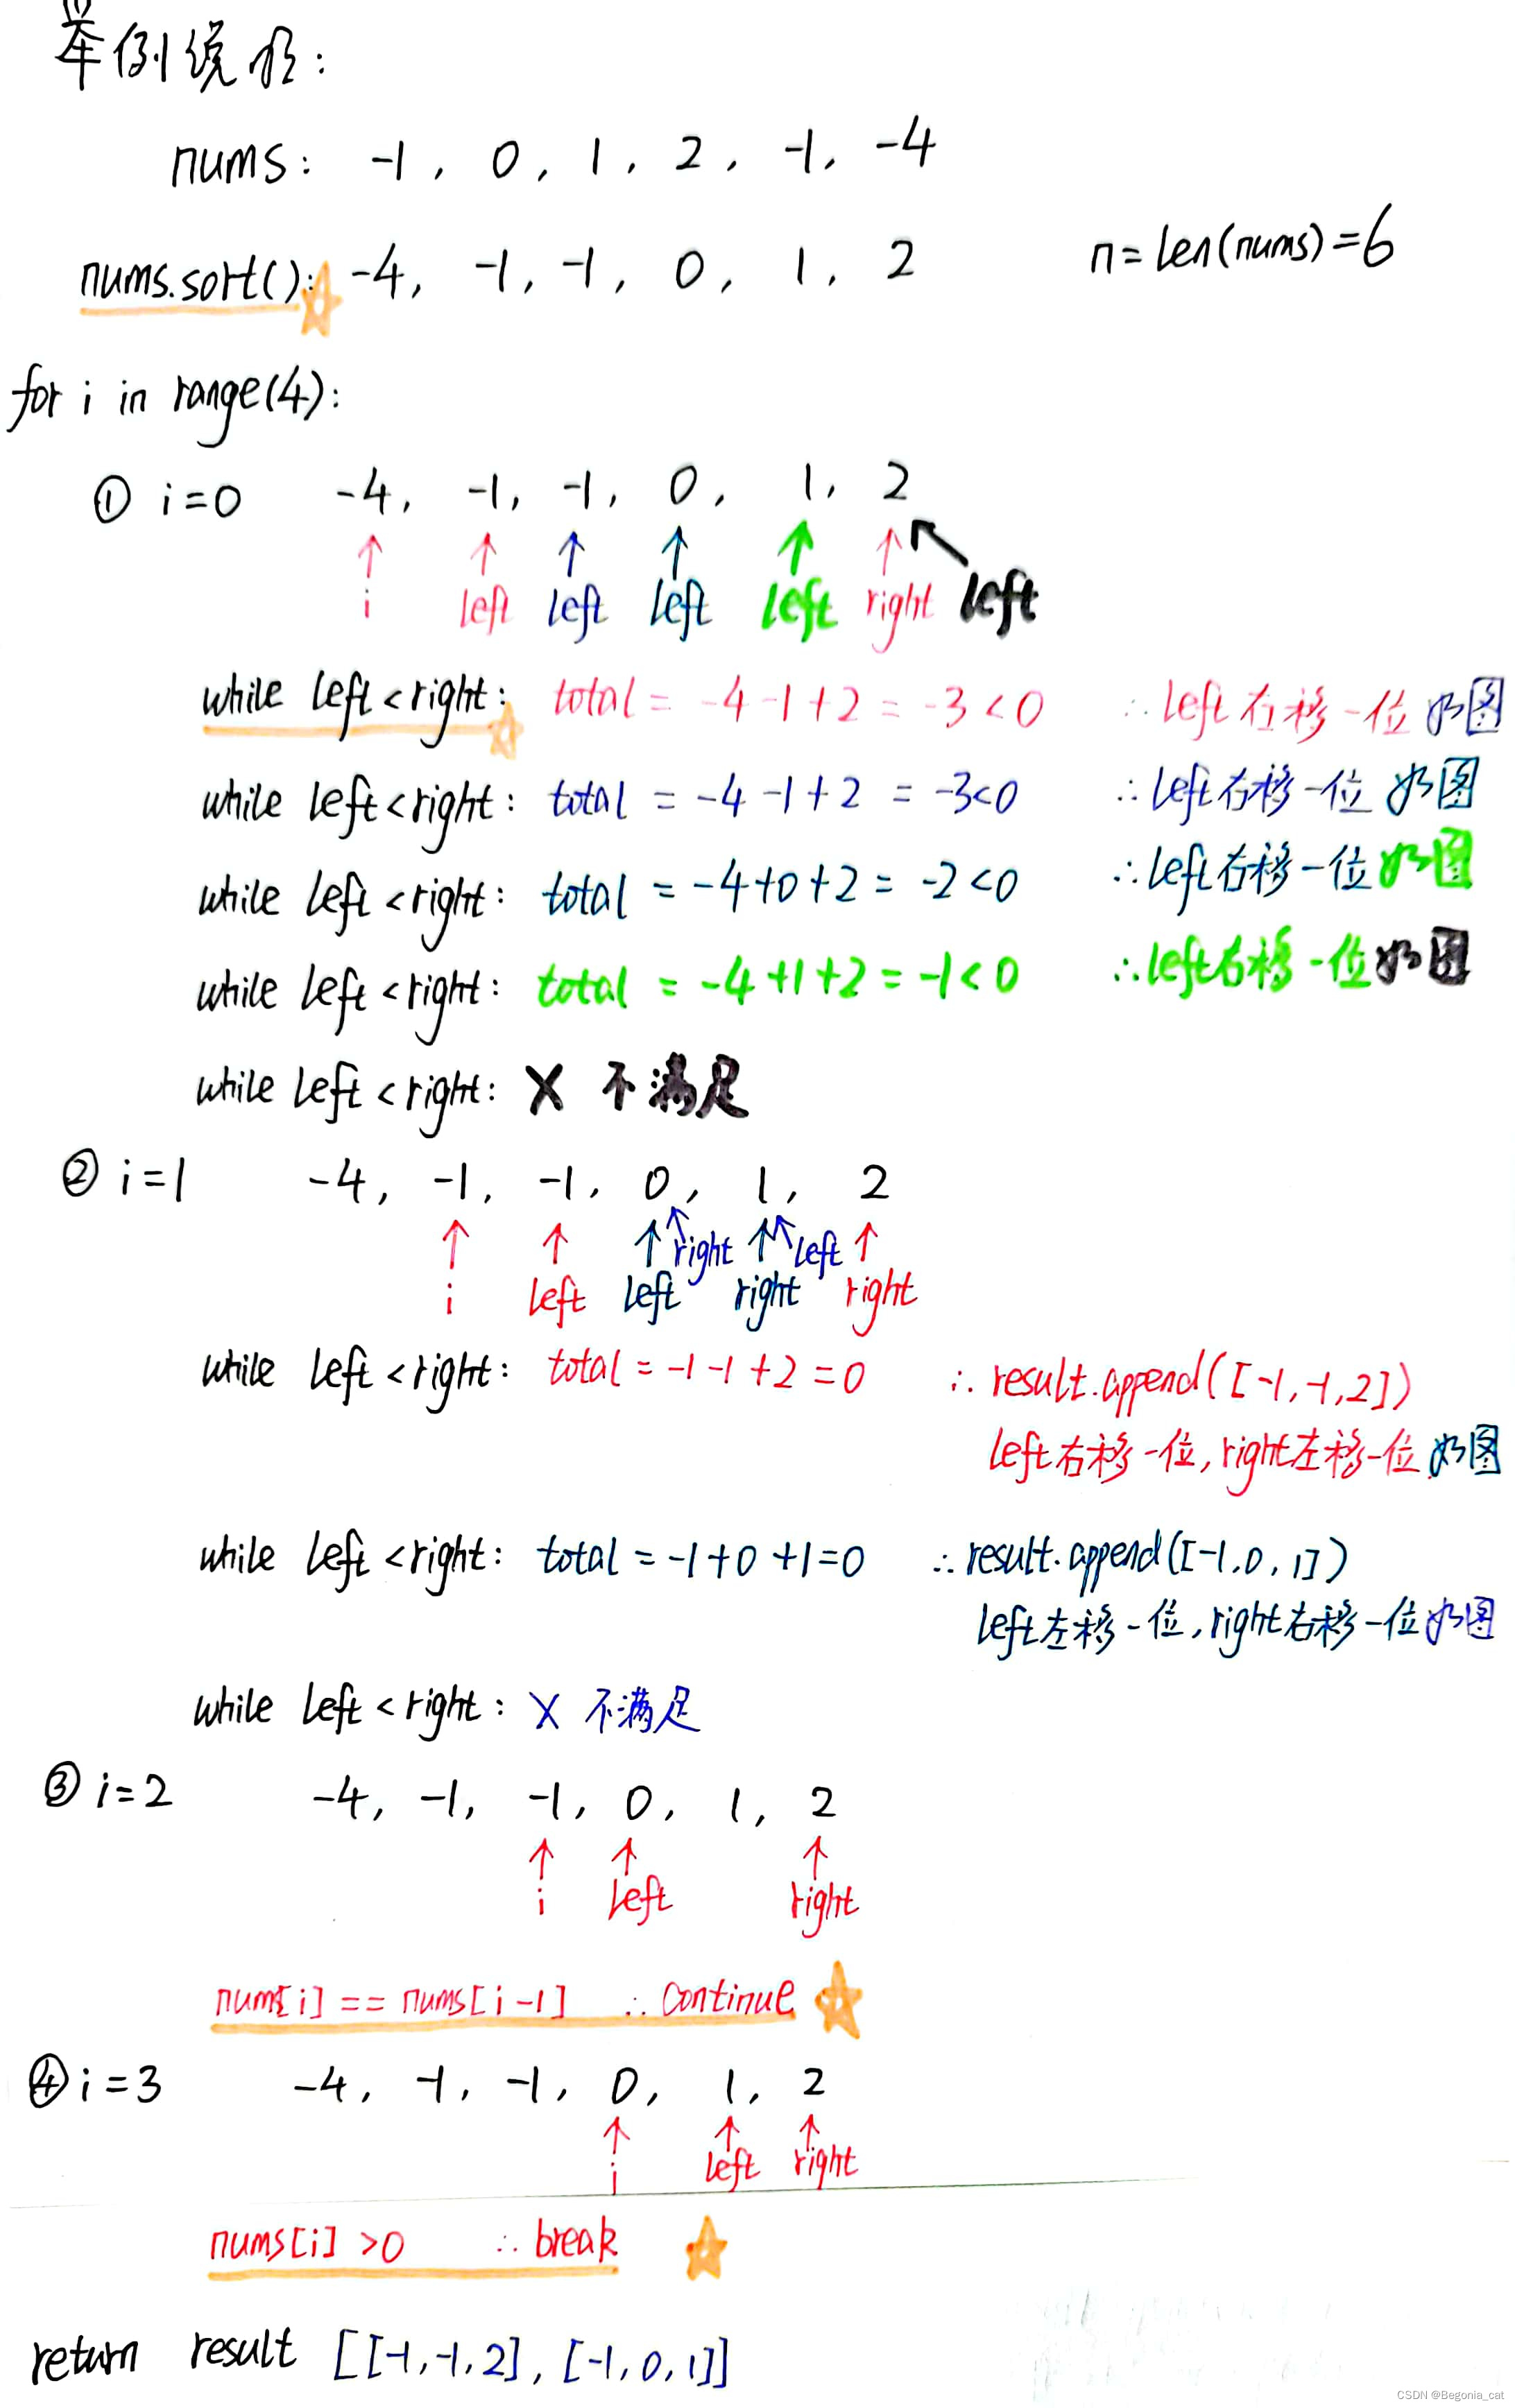 举例说明:
nums: -1, 0, 1, 2, -1, -4
nums.sort(): -4, -1, -1, 0, 1, 2 n=len(nums)=6
for i in range(4):
① i=0 -4, -1, -1, 0, 1, 2
i left left left left right left
while left<right: total = -4-1+2 = -3<0 ∴left右移一位 如图
while left<right: total = -4-1+2 = -3<0 ∴left右移一位 如图
while left<right: total = -4+0+2 = -2<0 ∴left右移一位如图
while left<right: total = -4+1+2 = -1<0 ∴left右移一位如图
while left<right: X 不满足
② i=1 -4, -1, -1, 0, 1, 2
right left
i left left right right
while left<right: total = -1-1+2=0 ∴result.append([-1,-1,2])
left右移一位,right左移一位 如图
while left<right: total = -1+0+1=0 ∴result.append([-1,0,1])
left左移一位,right右移一位如图
while left<right: X 不满足
③ i=2 -4, -1, -1, 0, 1, 2
i left right
num[i] == nums[i-1] ∴continue
④ i=3 -4, -1, -1, 0, 1, 2
i left right
nums[i]>0 ∴break
return result [[-1,-1,2],[-1,0,1]]
CSDN @Begonia_cat